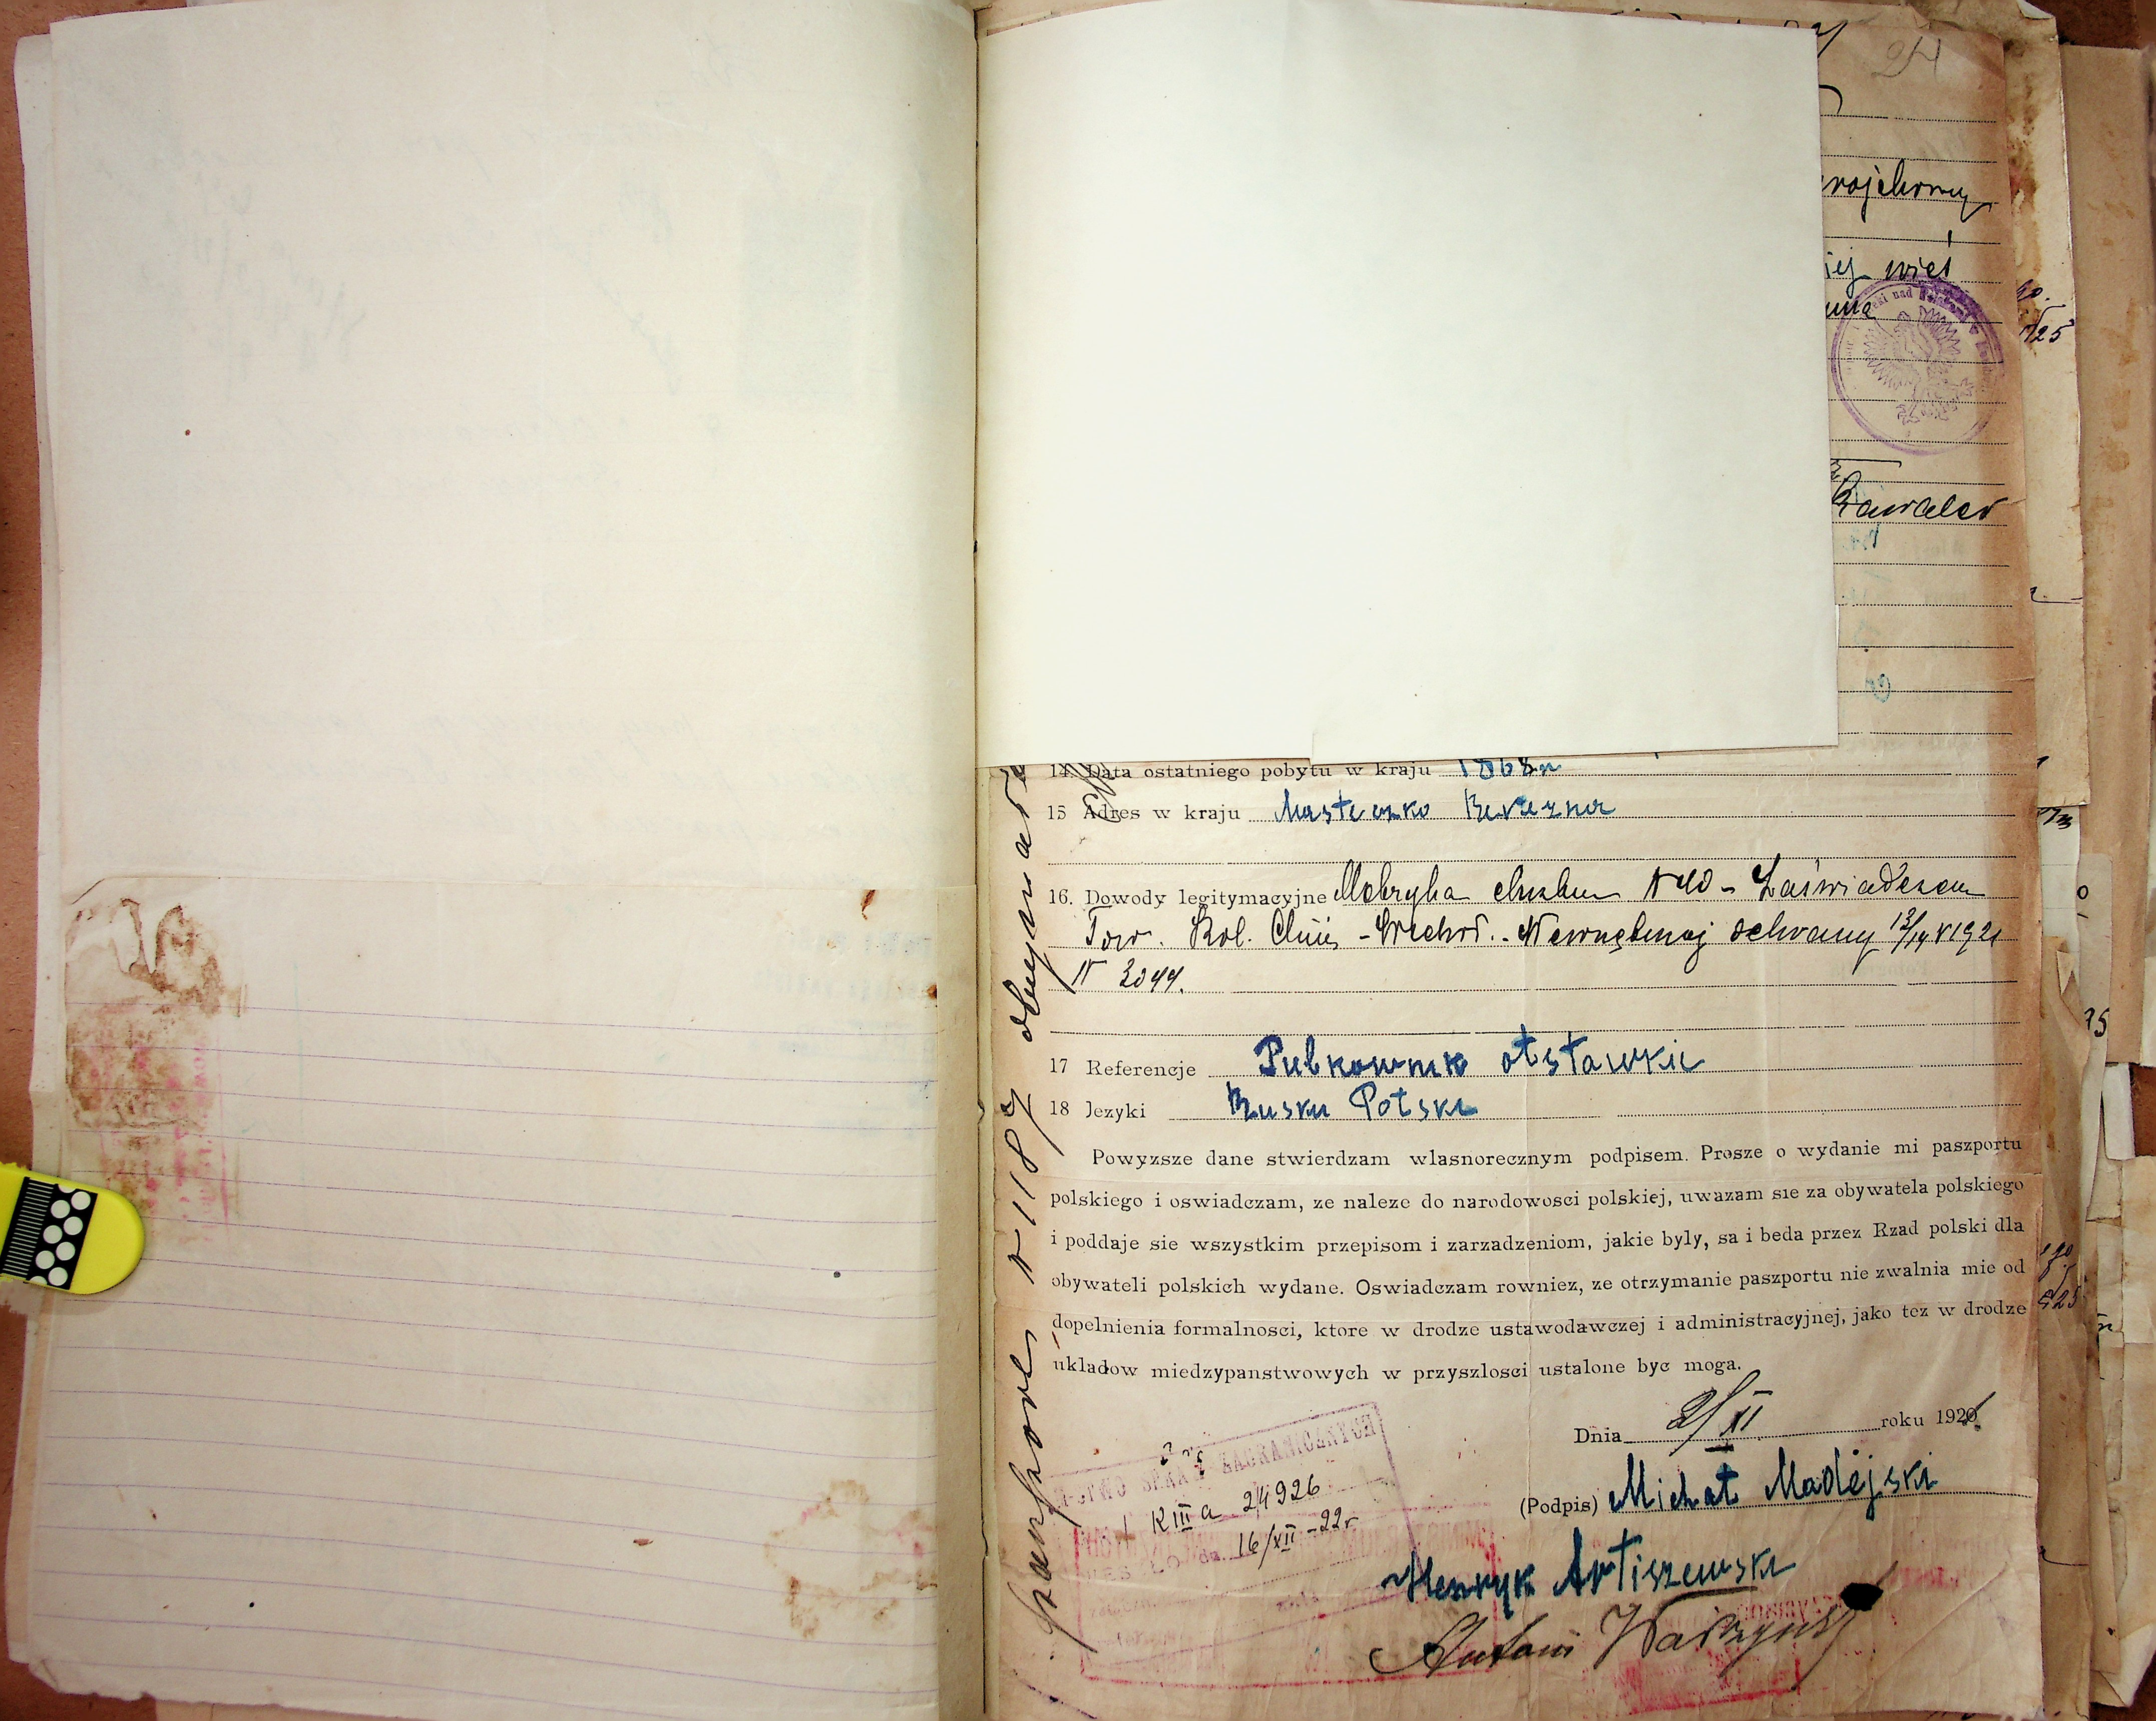 24
wieś
Kawaler
14. Data ostatniego pobytu w kraju 1868 r
15 Adres w kraju Masteczko Berezna
16. Dowody legitymacyjne Metryka chrztu N 40 - Zaświadczen
Tow. Kol. Chiń - Wschod. - Wewnętrznej ochrany 13/14 V 1921
N 3044.
17 Referencje Pulkownik otstawkie
18 Jezyki Rusku Polski
Powyzsze dane stwierdzam wlasnorecznym podpisem. Prosze o wydanie mi paszportu
polskiego i oswiadczam, ze naleze do narodowosci polskiej, uwazam sie za obywatela polskiego
i poddaje sie wszystkim przepisom i zarzadzeniom, jakie byly, sa i beda przez Rzad polski dla
obywateli polskich wydane. Oswiadczam rowniez, ze otrzymanie paszportu nie zwalnia mie od
dopelnienia formalnosci, ktore w drodze ustawodawczej i administracyjnej, jako tez w drodze
ukladow miedzypanstwowych w przyszlosci ustalone byc moga.
Dnia 2/XI roku 192
(Podpis) Michał Madejski
Henryk Artiszewski
Antoni
ZAGRANICZNYCH
K III a 24926
16/XII - 22 r
paszport N 1187 otrzymałem